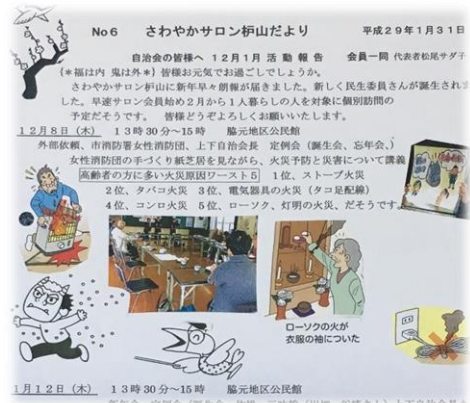 No6 さわやかサロン枦山だより 平成29年1月31日
自治会の皆様へ 12月1月 活動報告 会員一同 代表者松尾サダ子
{*福は内 鬼は外*} 皆様お元気でお過ごしでしょうか。
さわやかサロン枦山に新年早々朗報が届きました。新しく民生委員さんが誕生されま
した。早速サロン会員始め2月から1人暮らしの人を対象に個別訪問の
予定だそうです。 皆様どうぞよろしくお願いいたします。
12月8日(木) 13時30分~15時 脇元地区公民館
外部依頼、市消防署女性消防団、上下自治会長 定例会(誕生会、忘年会、)
女性消防団の手づくり紙芝居を見ながら、火災予防と災害について講義
高齢者の方に多い火災原因ワースト5 1位、ストーブ火災
2位、タバコ火災 3位、電気器具の火災(タコ足配線)
4位、コンロ火災 5位、ローソク、灯明の火災、だそうです。
ローソクの火が
衣服の袖についた
1月12日(木) 13時30分~15時 脇元地区公民館